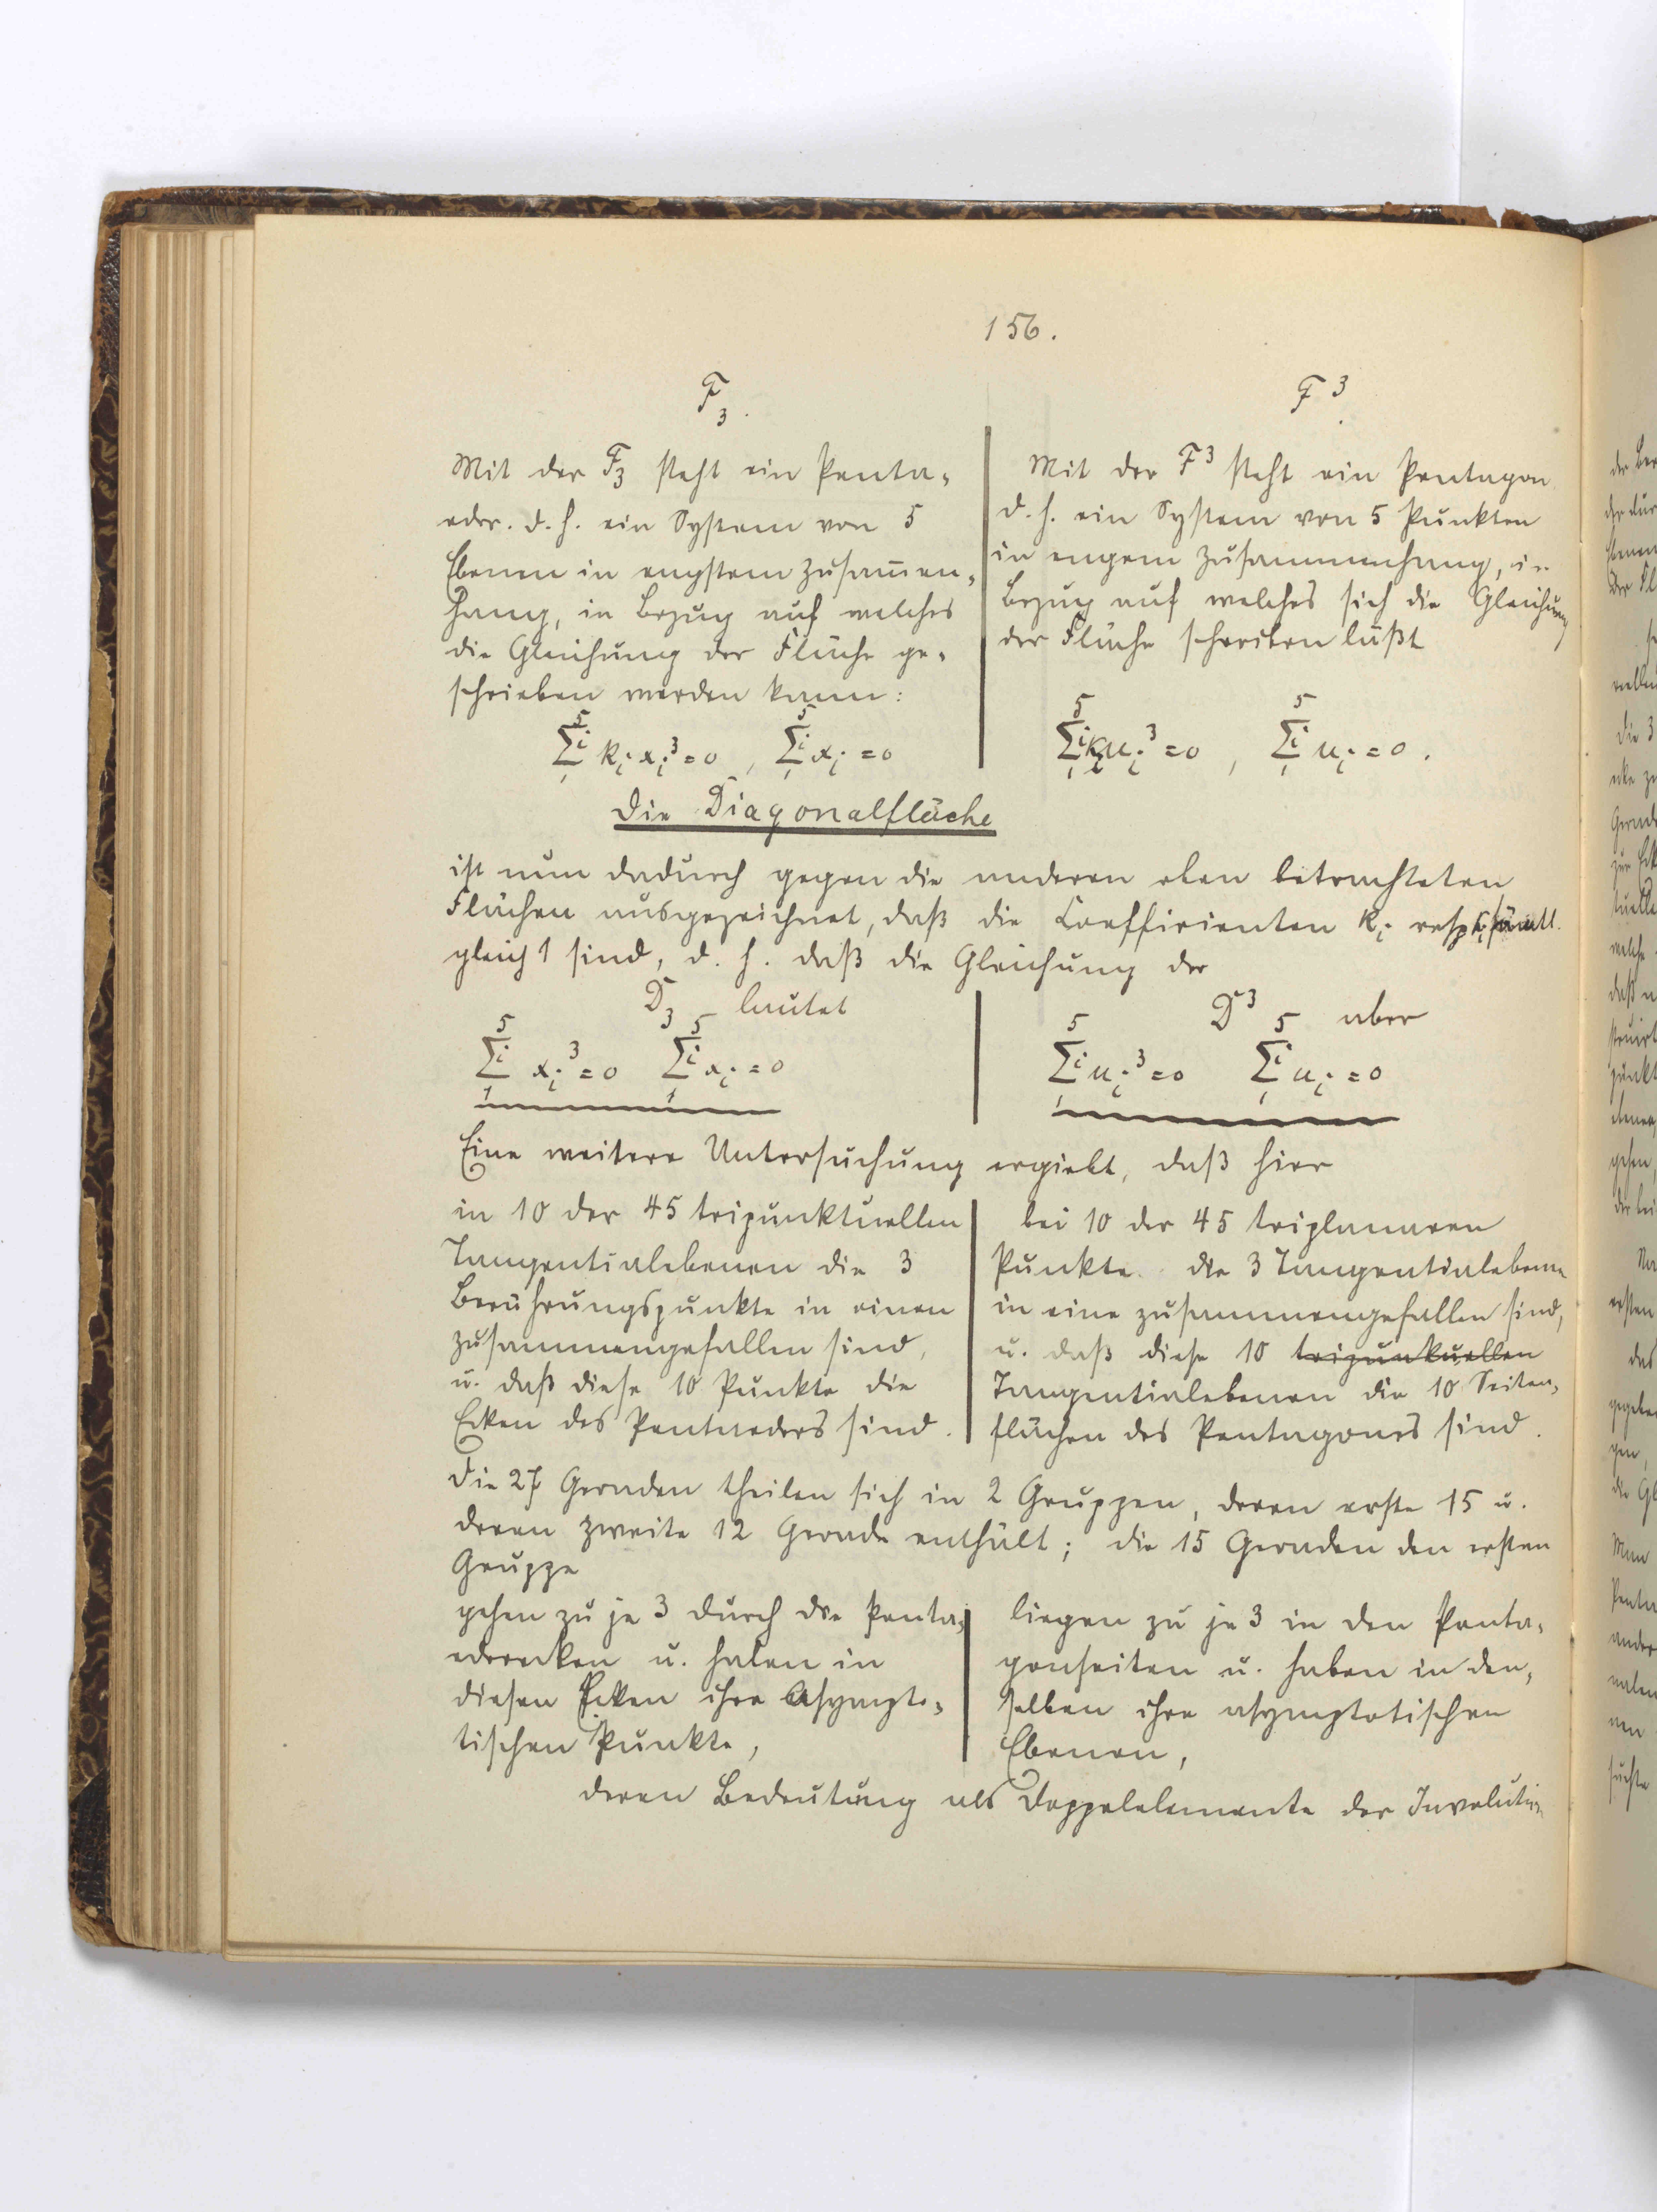 156.
F₃.
Mit der F₃ steht ein Penta-
eder. d. h. ein System von 5
Ebenen in engstem Zusam̄en-
hang, in Bezug auf welches
die Gleichung der Fläche ge-
schrieben werden kann:
∑₁⁵ⁱ kᵢxᵢ³=0, ∑₁⁵ⁱ xᵢ=0
F³
Mit der F³ steht ein Pentagon
d. h. ein System von 5 Punkten
in engem Zusammenhang, in
Bezug auf welches sich die Gleichung
der Fläche schreiben läßt
∑₁⁵ⁱ kᵢuᵢ³=0, ∑₁⁵ⁱ uᵢ=0.
Die Diagonalfläche
ist nun dadurch gegen die anderen oben betrachteten
Flächen ausgezeichnet, daß die Coefficienten kᵢ resp. sämtl.
gleich 1 sind, d. h. daß die Gleichung der
D₃ lautet
∑₁⁵ⁱ xᵢ³=0 ∑₁⁵ⁱ xᵢ=0
D³ aber
∑₁⁵ⁱ uᵢ³=0 ∑₁⁵ⁱ uᵢ=0
Eine weitere Untersuchung ergiebt, daß hier
in 10 der 45 tripunktuellen
Tangentialebenen die 3
Berührungspunkte in einen
zusammengefallen sind,
u. daß diese 10 Punkte die
Ecken des Pentaeders sind.
bei 10 der 45 triplanaren
Punkte die 3 Tangentialebenen
in eine zusammengefallen sind,
u. daß diese 10 tripunkuellen
Tangentialebenen die 10 Seiten-
flächen des Pentagones sind.
Die 27 Geraden theilen sich in 2 Gruppen, deren erste 15 u.
deren zweite 12 Gerade enthält; die 15 Geraden den ersten
Gruppe
gehen zu je 3 durch die Penta-
ederecken u. haben in
diesen Ecken ihre asympto-
tischen Punkte,
liegen zu je 3 in den Penta-
gonseiten u. haben in den-
selben ihre asymptotischen
Ebenen,
deren Bedeutung als Doppelelemente der Involution